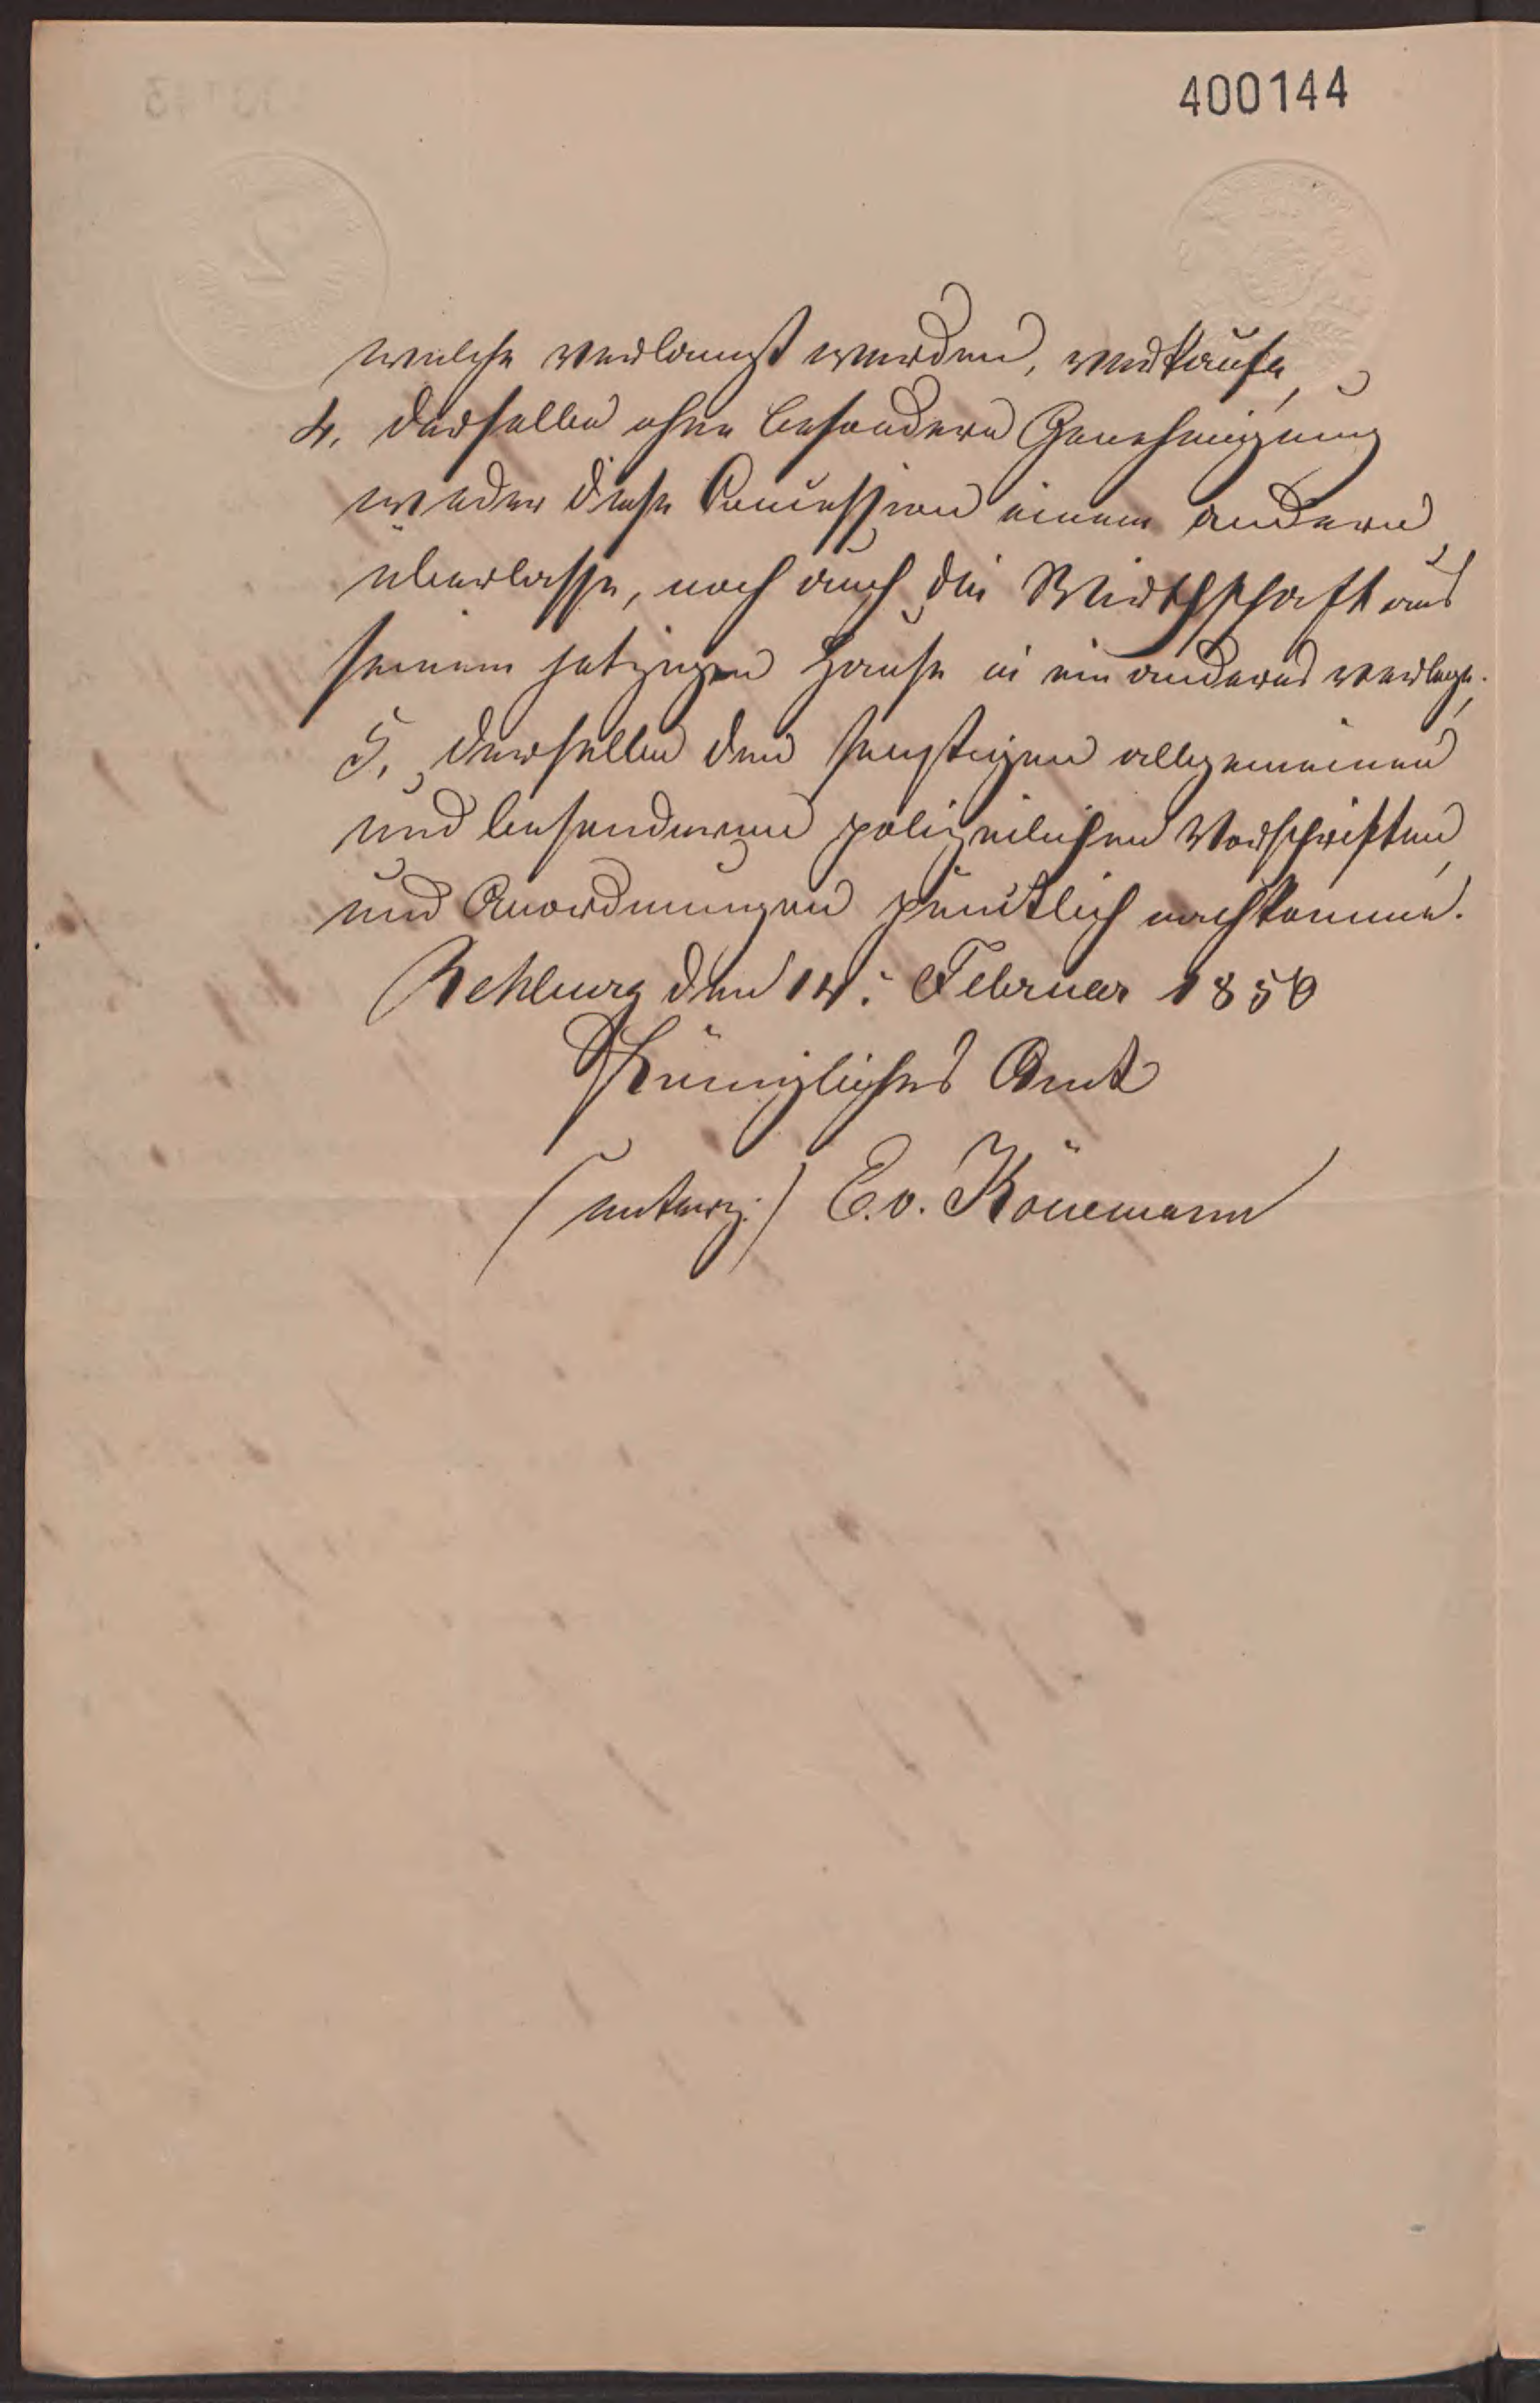 400144
welche verlangt werden, verkaufe,
4. derselbe ohne besondere Genehmigung
weder diese Concession einem andern
überlasse, noch auch die Wirthschaft aus
seinem jetzigen Hause in ein anderes verlege.
5. derselbe den sonstigen allgemeinen
und besonderen polizeilichen Vorschriften
und Anordnungen pünktlich nachkomme.
Rehburg den 14. Februar 1850
Königliches Amt
(unterz.) E. v. Könemann